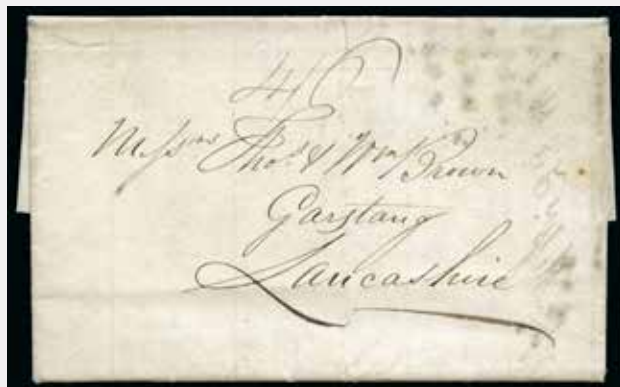 Messrs Thos & Wm Brown
Garstang
Lancashire